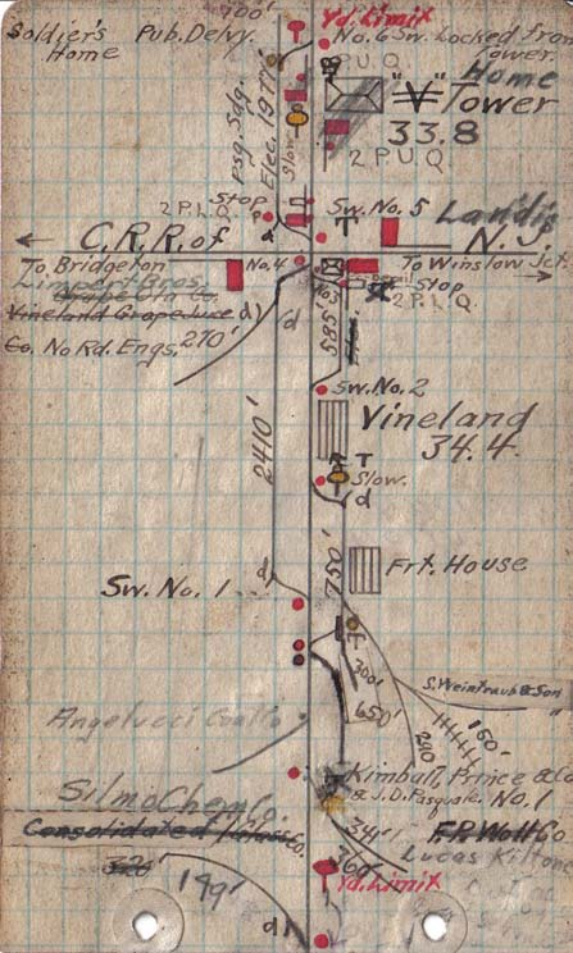 700'
Yd. Limix
Soldier's
Home
Pub. Delvy.
No. 6 Sw. Locked from
Tower.
P.U.Q.
Home
"V" Tower
33.8
2 P.U.Q.
Psg. Sdg.
Elec. 1977'
Slow
Stop
2 P.L.Q.
Sw. No. 5
Landis
T
C.R.R. of
N.J.
To Bridgeton
No. 4
To Winslow Jct.
Limpert Bros.
Grape Gin Co.
Stop
2 P.L.Q.
Vineland Grapejuice
d
Co. No Rd. Engs.
270'
d
585'
Elec.
Sw. No. 2
Vineland
34.4
2410'
T
Slow.
d
750'
Frt. House
Sw. No. 1
d
300'
650'
S. Weintraub & Son
150'
290
Angelucci
Kimball, Prince & Co
& J.D. Pasquale. No. 1
Silmo Chem Co.
Consolidated Glass Co.
341'
F.P. Woll Co
Lucas Kiltone
360'
326'
149'
Yd. Limix
d